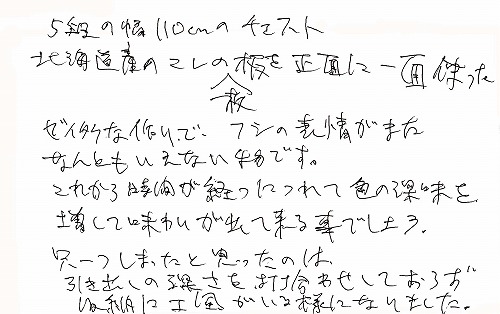 5組の幅110cmのチェスト
北海道産のニレの板を正面に一面使った
一枚
ゼイタクな作りで、フシの表情がまた
なんともいえない特です。
これから時間が経つにつれて色の深味を
増して味わいが出て来る事でしょう。
只一つしまったと思ったのは
引き出しの深さを打合わせしておらず
収納に工夫がいる様になりました。